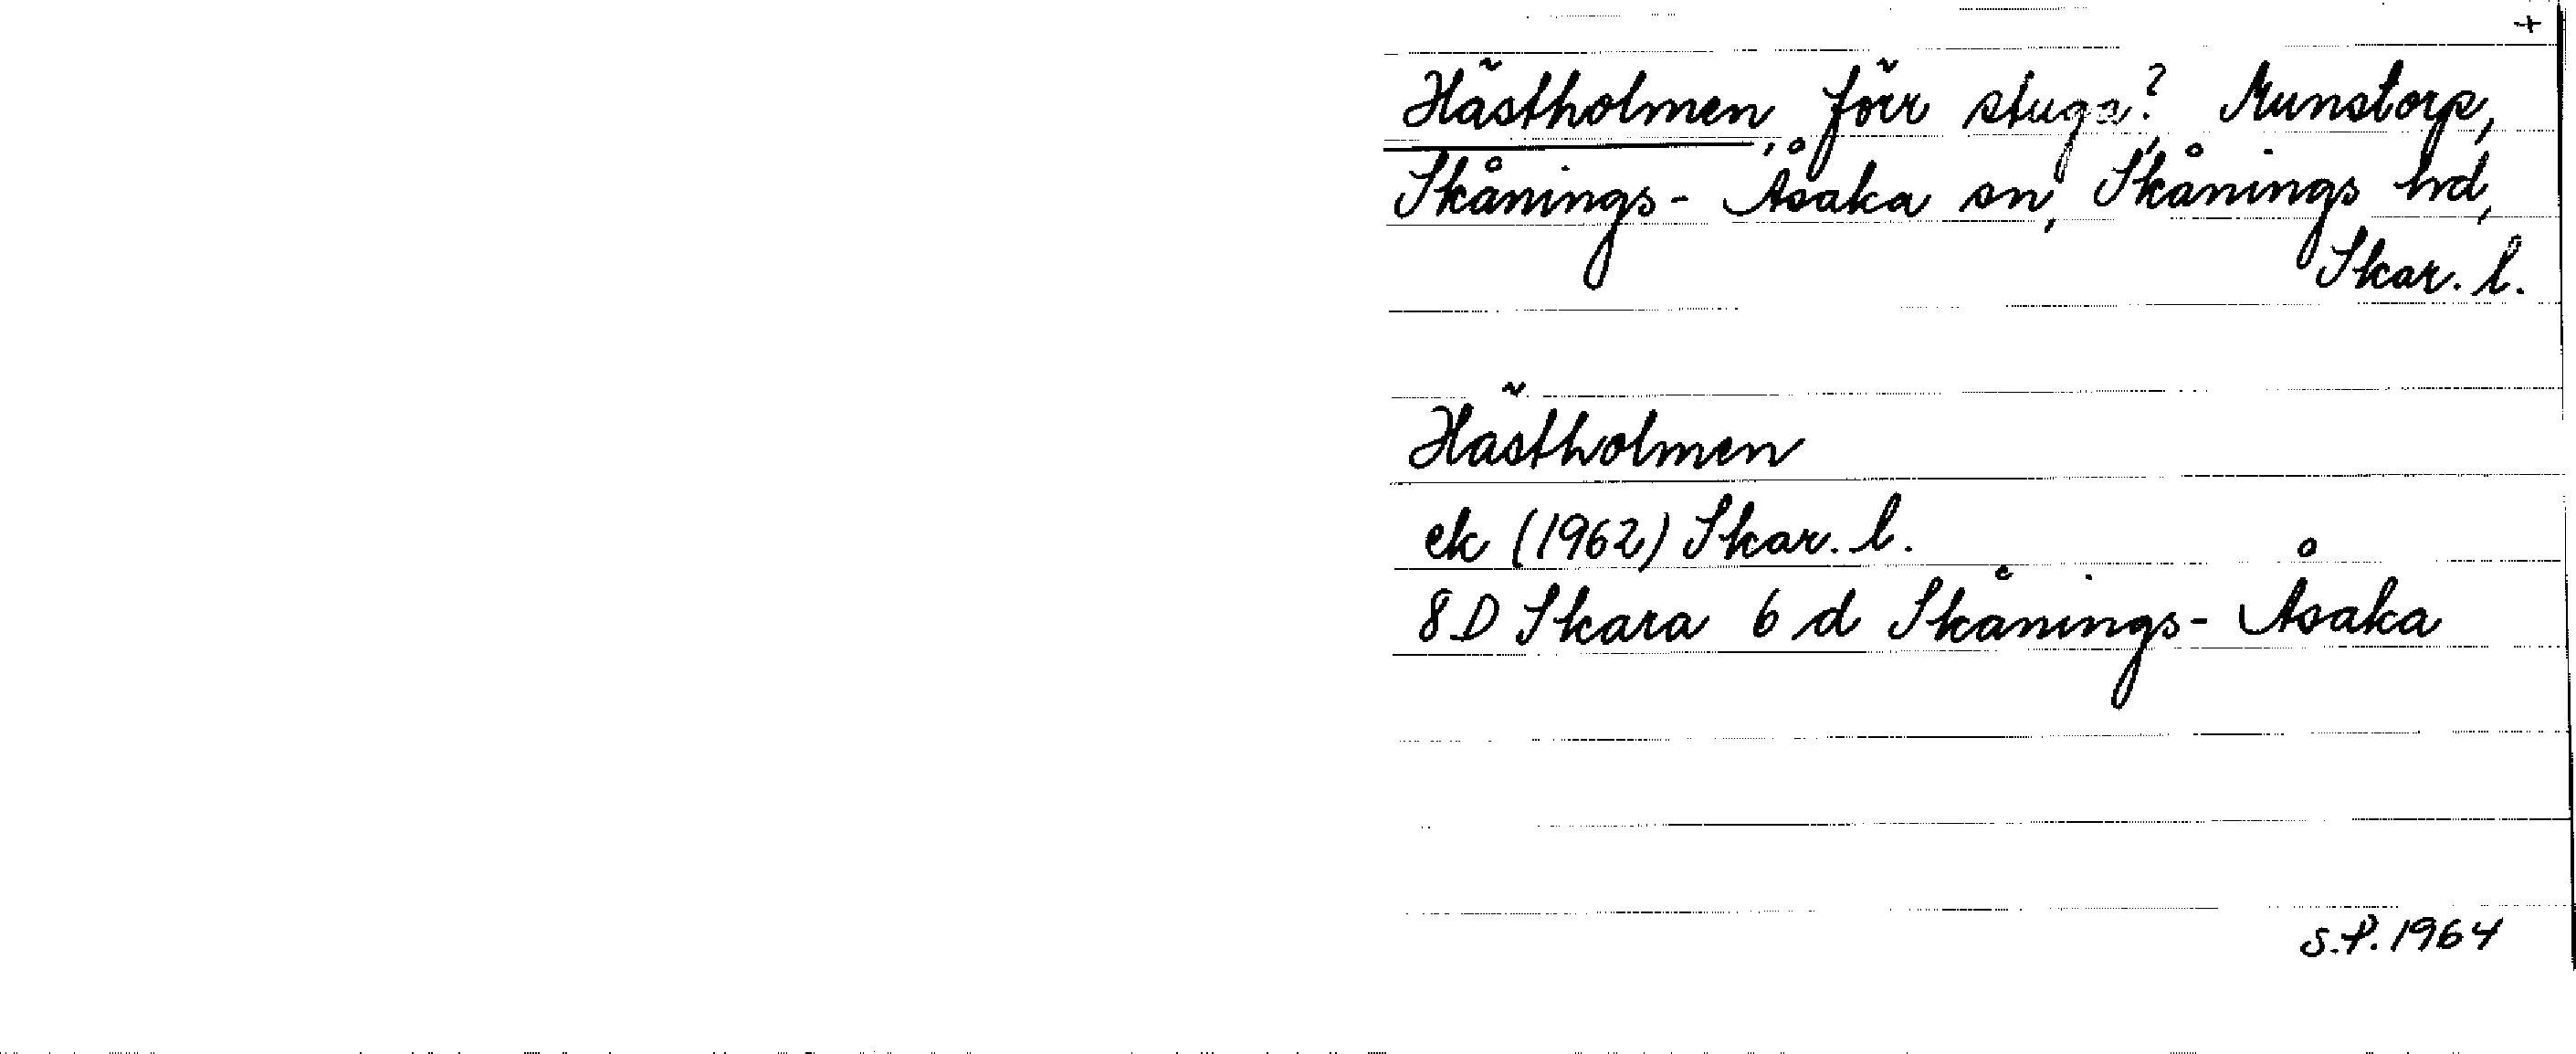 +
Hästholmen, förr stuga?, Munstorp,
Skånings-Åsaka sn, Skånings hd,
Skar. l.
Hästholmen
ek (1962) Skar. l.
8D Skara 6 d Skånings-Åsaka
S.P. 1964